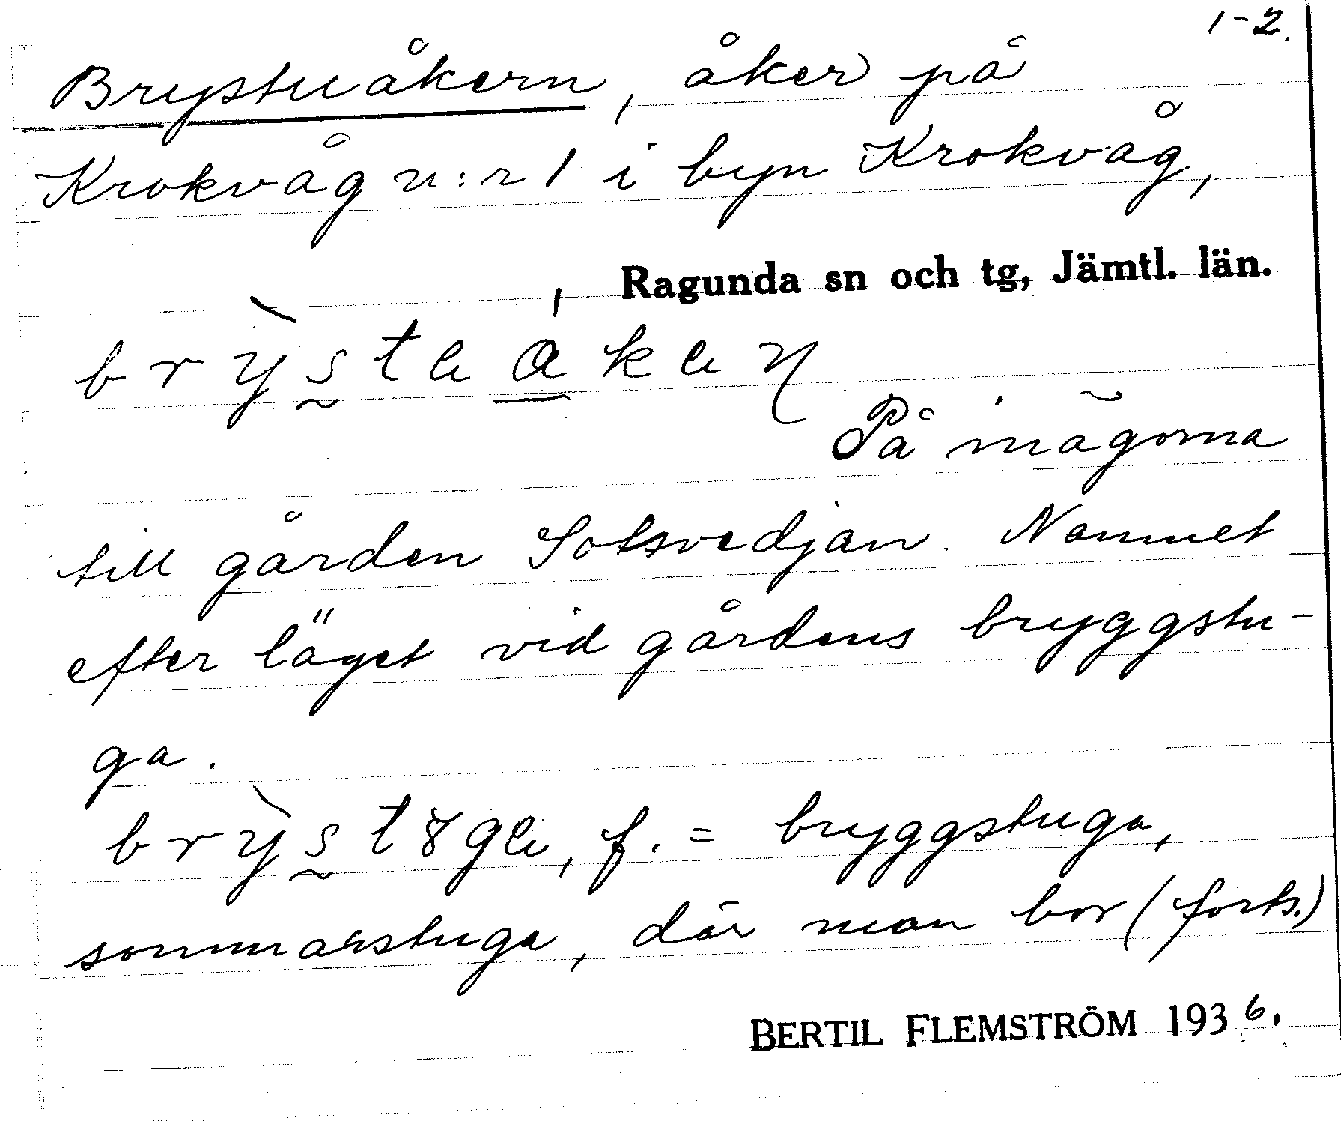 1-2.
Brystuåkern, åker på
Krokvåg n:r 1 i byn Krokvåg,
, Ragunda sn och tg, Jämtl. län.
På inägorna
till gården Sotsvedjan. Namnet
efter läget vid gårdens bryggstu-
ga.
f. = bryggstuga,
sommarstuga, där man bor (forts.)
BERTIL FLEMSTRÖM 1936.